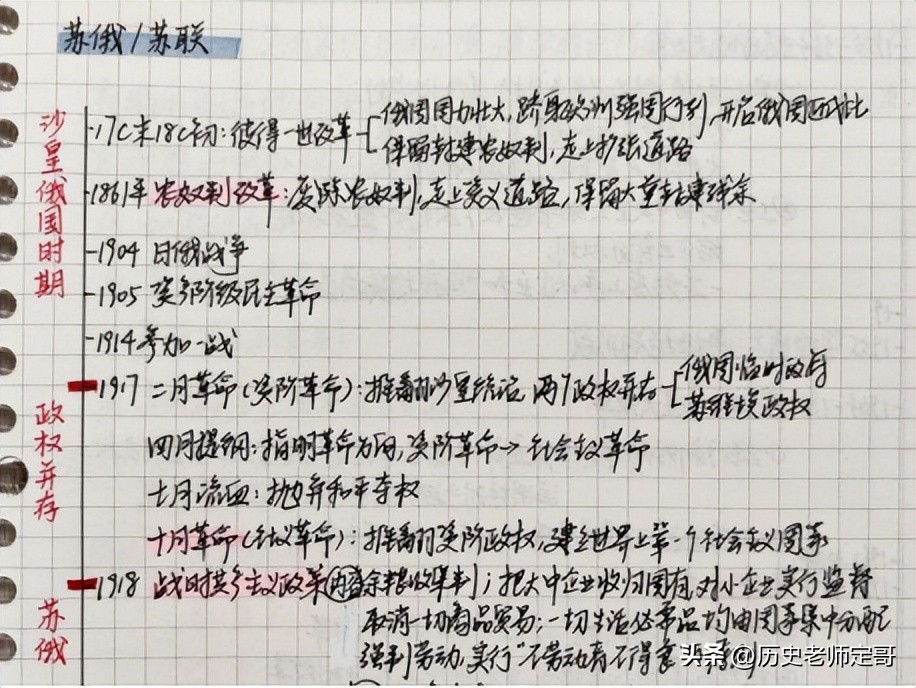 苏俄/苏联
沙皇俄国时期
·17C末18C初:彼得一世改革
俄国国力壮大,跻身欧洲强国行列,开启俄国近代化
保留封建农奴制,走上扩张道路
-1861年 农奴制改革:废除农奴制,走上资义道路,保留大量封建残余
-1904 日俄战争
-1905 资产阶级民主革命
-1914 参加一战
政权并存
-1917 二月革命(资阶革命):推翻沙皇统治 两个政权并存
俄国临时政府
苏维埃政权
四月提纲:指明革命方向,资阶革命→社会主义革命
七月流血:抛弃和平夺权
十月革命(社义革命):推翻资阶政权,建立世界上第一个社会主义国家
苏俄
-1918 战时共产主义政策 余粮收集制;把大中企业收归国有,对小企业实行监督
取消一切商品贸易;一切生活必需品均由国家集中分配
强制劳动,实行"不劳动者不得食"
头条 @历史老师定哥